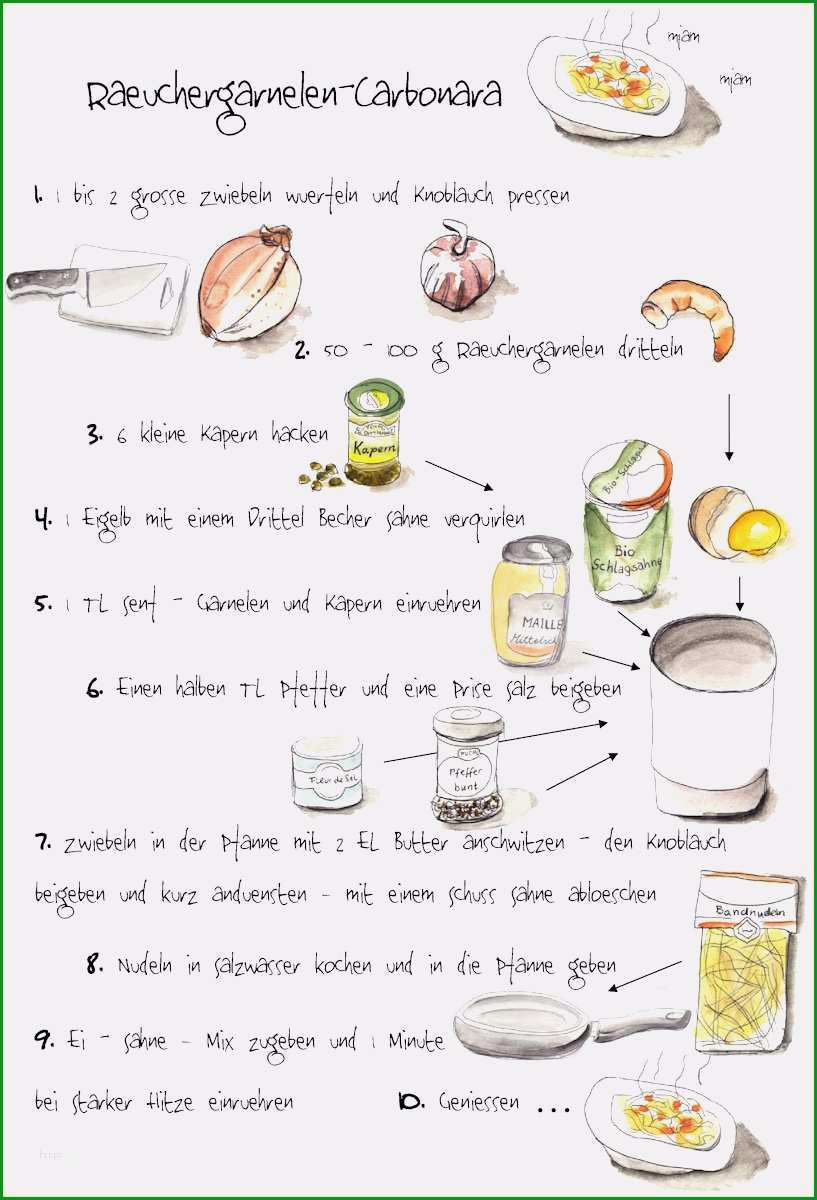 mjam
mjam
Raeuchergarnelen-Carbonara
1. 1 bis 2 grosse Zwiebeln wuerfeln und Knoblauch pressen
2. 50 - 100 g Raeuchergarnelen dritteln
3. 6 kleine Kapern hacken
Kapern
4. 1 Eigelb mit einem Drittel Becher Sahne verquirlen
Bio-Schlagsahne
Bio
Schlagsahne
5. 1 TL Senf - Garnelen und Kapern einruehren
MAILLE
Mittelsch
6. Einen halben TL Pfeffer und eine Prise Salz beigeben
Fleur de Sel
Pfeffer
bunt
7. Zwiebeln in der Pfanne mit 2 EL Butter anschwitzen - den Knoblauch
beigeben und kurz anduensten - mit einem Schuss Sahne abloeschen
Bandnudeln
8. Nudeln in Salzwasser kochen und in die Pfanne geben
9. Ei - Sahne - Mix zugeben und 1 Minute
bei starker Hitze einruehren
10. Geniessen ...